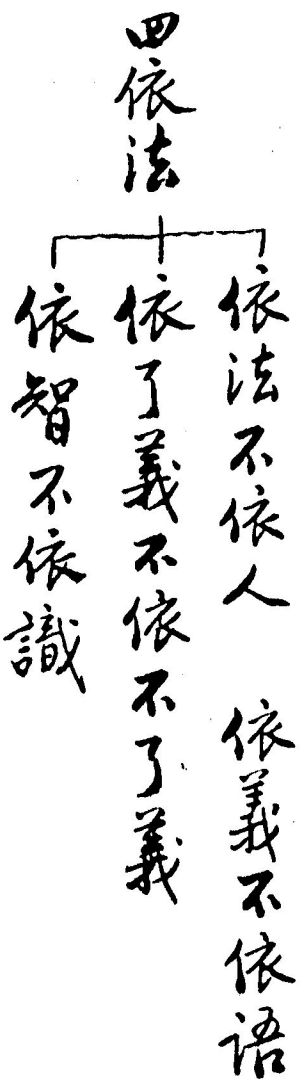 四依法
依法不依人　依義不依語
依了義不依不了義
依智不依識